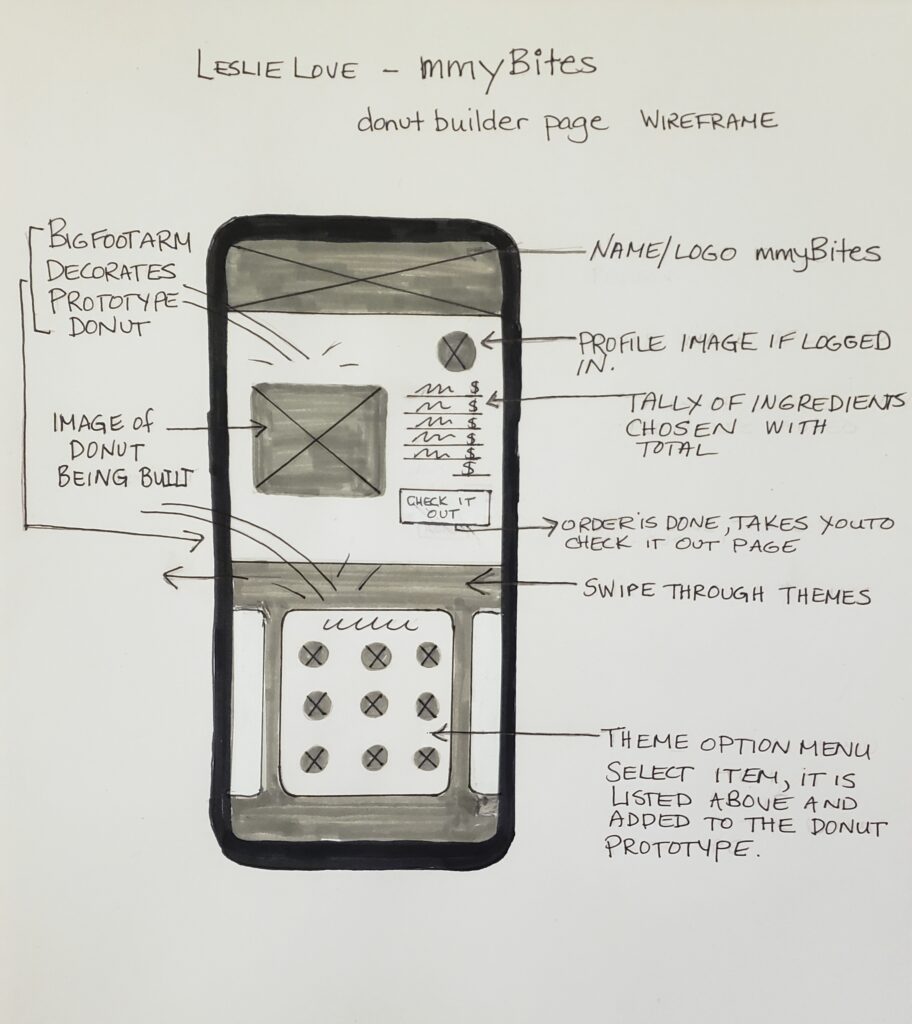 LESLIE LOVE - mmyBites
donut builder page WIREFRAME
BIGFOOT ARM
DECORATES
PROTOTYPE
DONUT
IMAGE of
DONUT
BEING BUILT
NAME/LOGO mmyBites
PROFILE IMAGE IF LOGGED
IN.
$
$
$
$
$
$
TALLY OF INGREDIENTS
CHOSEN WITH
TOTAL
CHECK IT
OUT
ORDER IS DONE, TAKES YOU TO
CHECK IT OUT PAGE
SWIPE THROUGH THEMES
THEME OPTION MENU
SELECT ITEM, IT IS
LISTED ABOVE AND
ADDED TO THE DONUT
PROTOTYPE.